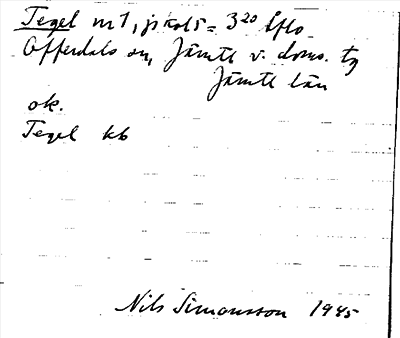 Tegel nr 1, jordr = 3²⁰ Åflo
Offerdals sn, Jämtl v. doms. tg
Jämtl län
ok.
Tegel kb
Nils Simonsson 1945